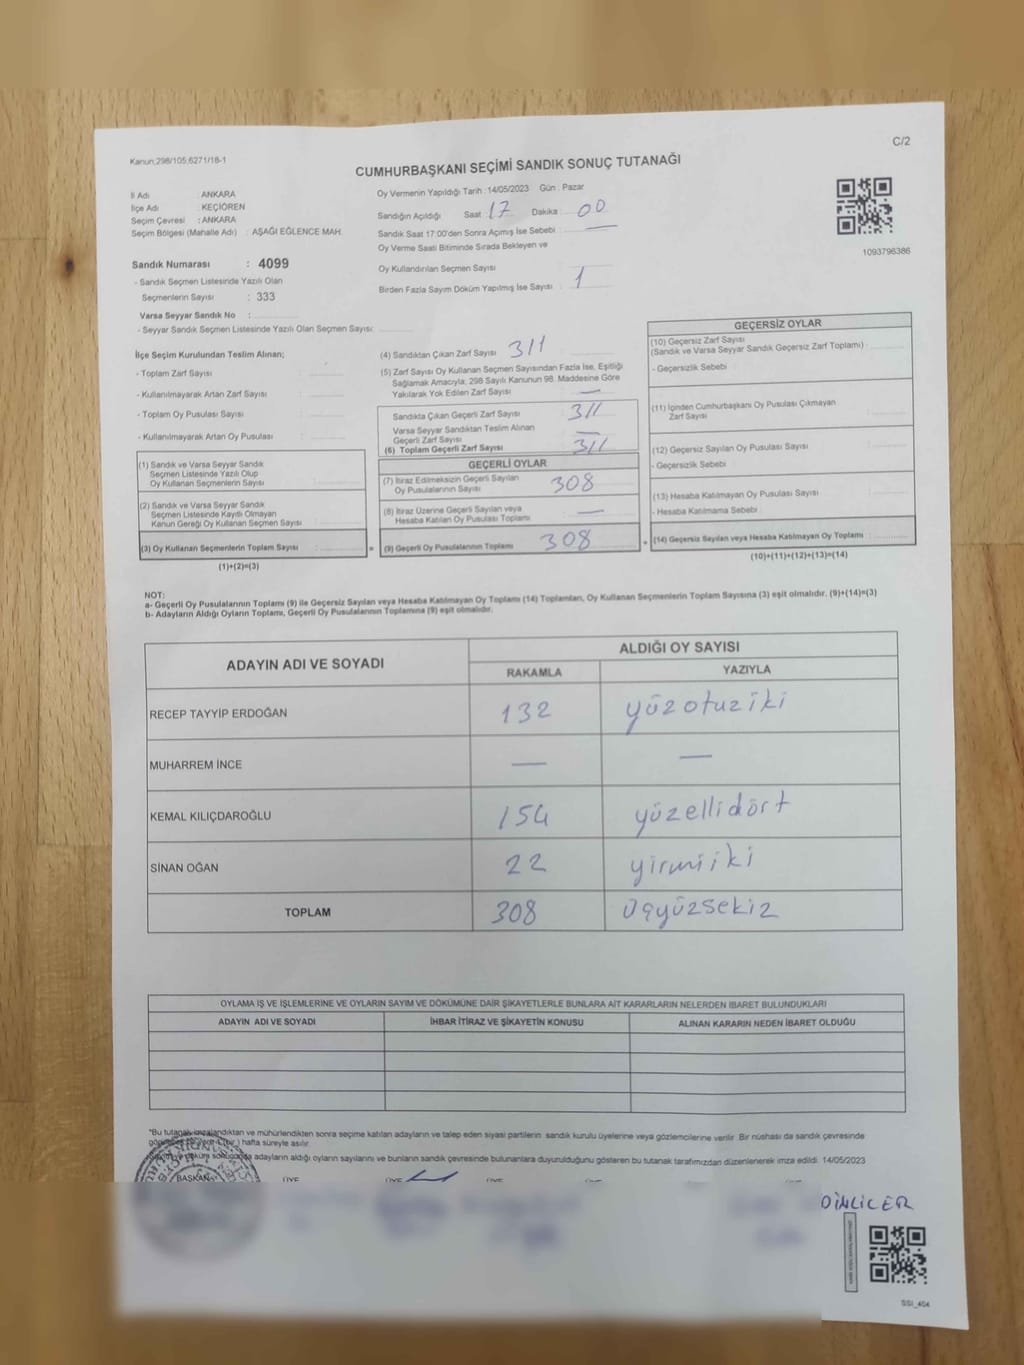 Kanun;298/105,6271/18-1
C/2
CUMHURBAŞKANI SEÇİMİ SANDIK SONUÇ TUTANAĞI
İl Adı : ANKARA
İlçe Adı : KEÇİÖREN
Seçim Çevresi : ANKARA
Seçim Bölgesi (Mahalle Adı) : AŞAĞI EĞLENCE MAH.
Oy Vermenin Yapıldığı Tarih : 14/05/2023 Gün : Pazar
Sandığın Açıldığı Saat : 17 Dakika : 00
Sandık Saat 17:00'den Sonra Açımış İse Sebebi : —
Oy Verme Saati Bitiminde Sırada Bekleyen ve
Oy Kullandırılan Seçmen Sayısı
Birden Fazla Sayım Döküm Yapılmış İse Sayısı : 1
1093796386
Sandık Numarası : 4099
- Sandık Seçmen Listesinde Yazılı Olan
Seçmenlerin Sayısı : 333
Varsa Seyyar Sandık No :
- Seyyar Sandık Seçmen Listesinde Yazılı Olan Seçmen Sayısı:
İlçe Seçim Kurulundan Teslim Alınan;
- Toplam Zarf Sayısı :
- Kullanılmayarak Artan Zarf Sayısı :
- Toplam Oy Pusulası Sayısı :
- Kullanılmayarak Artan Oy Pusulası :
(1) Sandık ve Varsa Seyyar Sandık
Seçmen Listesinde Yazılı Olup
Oy Kullanan Seçmenlerin Sayısı :
(2) Sandık ve Varsa Seyyar Sandık
Seçmen Listesinde Kayıtlı Olmayan
Kanun Gereği Oy Kullanan Seçmen Sayısı :
(3) Oy Kullanan Seçmenlerin Toplam Sayısı : =
(1)+(2)=(3)
(4) Sandıktan Çıkan Zarf Sayısı : 311
(5) Zarf Sayısı Oy Kullanan Seçmen Sayısından Fazla İse, Eşitliği
Sağlamak Amacıyla; 298 Sayılı Kanunun 98. Maddesine Göre
Yakılarak Yok Edilen Zarf Sayısı : —
Sandıkta Çıkan Geçerli Zarf Sayısı : 311
Varsa Seyyar Sandıktan Teslim Alınan
Geçerli Zarf Sayısı : —
(6) Toplam Geçerli Zarf Sayısı : 311
GEÇERLİ OYLAR
(7) İtiraz Edilmeksizin Geçerli Sayılan
Oy Pusulalarının Sayısı : 308
(8) İtiraz Üzerine Geçerli Sayılan veya
Hesaba Katılan Oy Pusulası Toplamı : —
(9) Geçerli Oy Pusulalarının Toplamı : 308 +
GEÇERSİZ OYLAR
(10) Geçersiz Zarf Sayısı
(Sandık ve Varsa Seyyar Sandık Geçersiz Zarf Toplamı) :
- Geçersizlik Sebebi :
(11) İçinden Cumhurbaşkanı Oy Pusulası Çıkmayan
Zarf Sayısı :
(12) Geçersiz Sayılan Oy Pusulası Sayısı :
- Geçersizlik Sebebi :
(13) Hesaba Katılmayan Oy Pusulası Sayısı :
- Hesaba Katılmama Sebebi :
(14) Geçersiz Sayılan veya Hesaba Katılmayan Oy Toplamı :
(10)+(11)+(12)+(13)=(14)
NOT:
a- Geçerli Oy Pusulalarının Toplamı (9) ile Geçersiz Sayılan veya Hesaba Katılmayan Oy Toplamı (14) Toplamları, Oy Kullanan Seçmenlerin Toplam Sayısına (3) eşit olmalıdır. (9)+(14)=(3)
b- Adayların Aldığı Oyların Toplamı, Geçerli Oy Pusulalarının Toplamına (9) eşit olmalıdır.
ADAYIN ADI VE SOYADI ALDIĞI OY SAYISI
RAKAMLA YAZIYLA
RECEP TAYYİP ERDOĞAN 132 yüzotuziki
MUHARREM İNCE — —
KEMAL KILIÇDAROĞLU 154 yüzellidört
SİNAN OĞAN 22 yirmiiki
TOPLAM 308 üçyüzsekiz
OYLAMA İŞ VE İŞLEMLERİNE VE OYLARIN SAYIM VE DÖKÜMÜNE DAİR ŞİKAYETLERLE BUNLARA AİT KARARLARIN NELERDEN İBARET BULUNDUKLARI
ADAYIN ADI VE SOYADI İHBAR İTİRAZ VE ŞİKAYETİN KONUSU ALINAN KARARIN NEDEN İBARET OLDUĞU
*Bu tutanak imzalandıktan ve mühürlendikten sonra seçime katılan adayların ve talep eden siyasi partilerin sandık kurulu üyelerine veya gözlemcilerine verilir. Bir nüshası da sandık çevresinde
hafta süreyle asılır.
adayların aldığı oyların sayılarını ve bunların sandık çevresinde bulunanlara duyurulduğunu gösteren bu tutanak tarafımızdan düzenlenerek imza edildi. 14/05/2023
BAŞKAN ÜYE ÜYE ÜYE
DİNLİCER
SSI_404